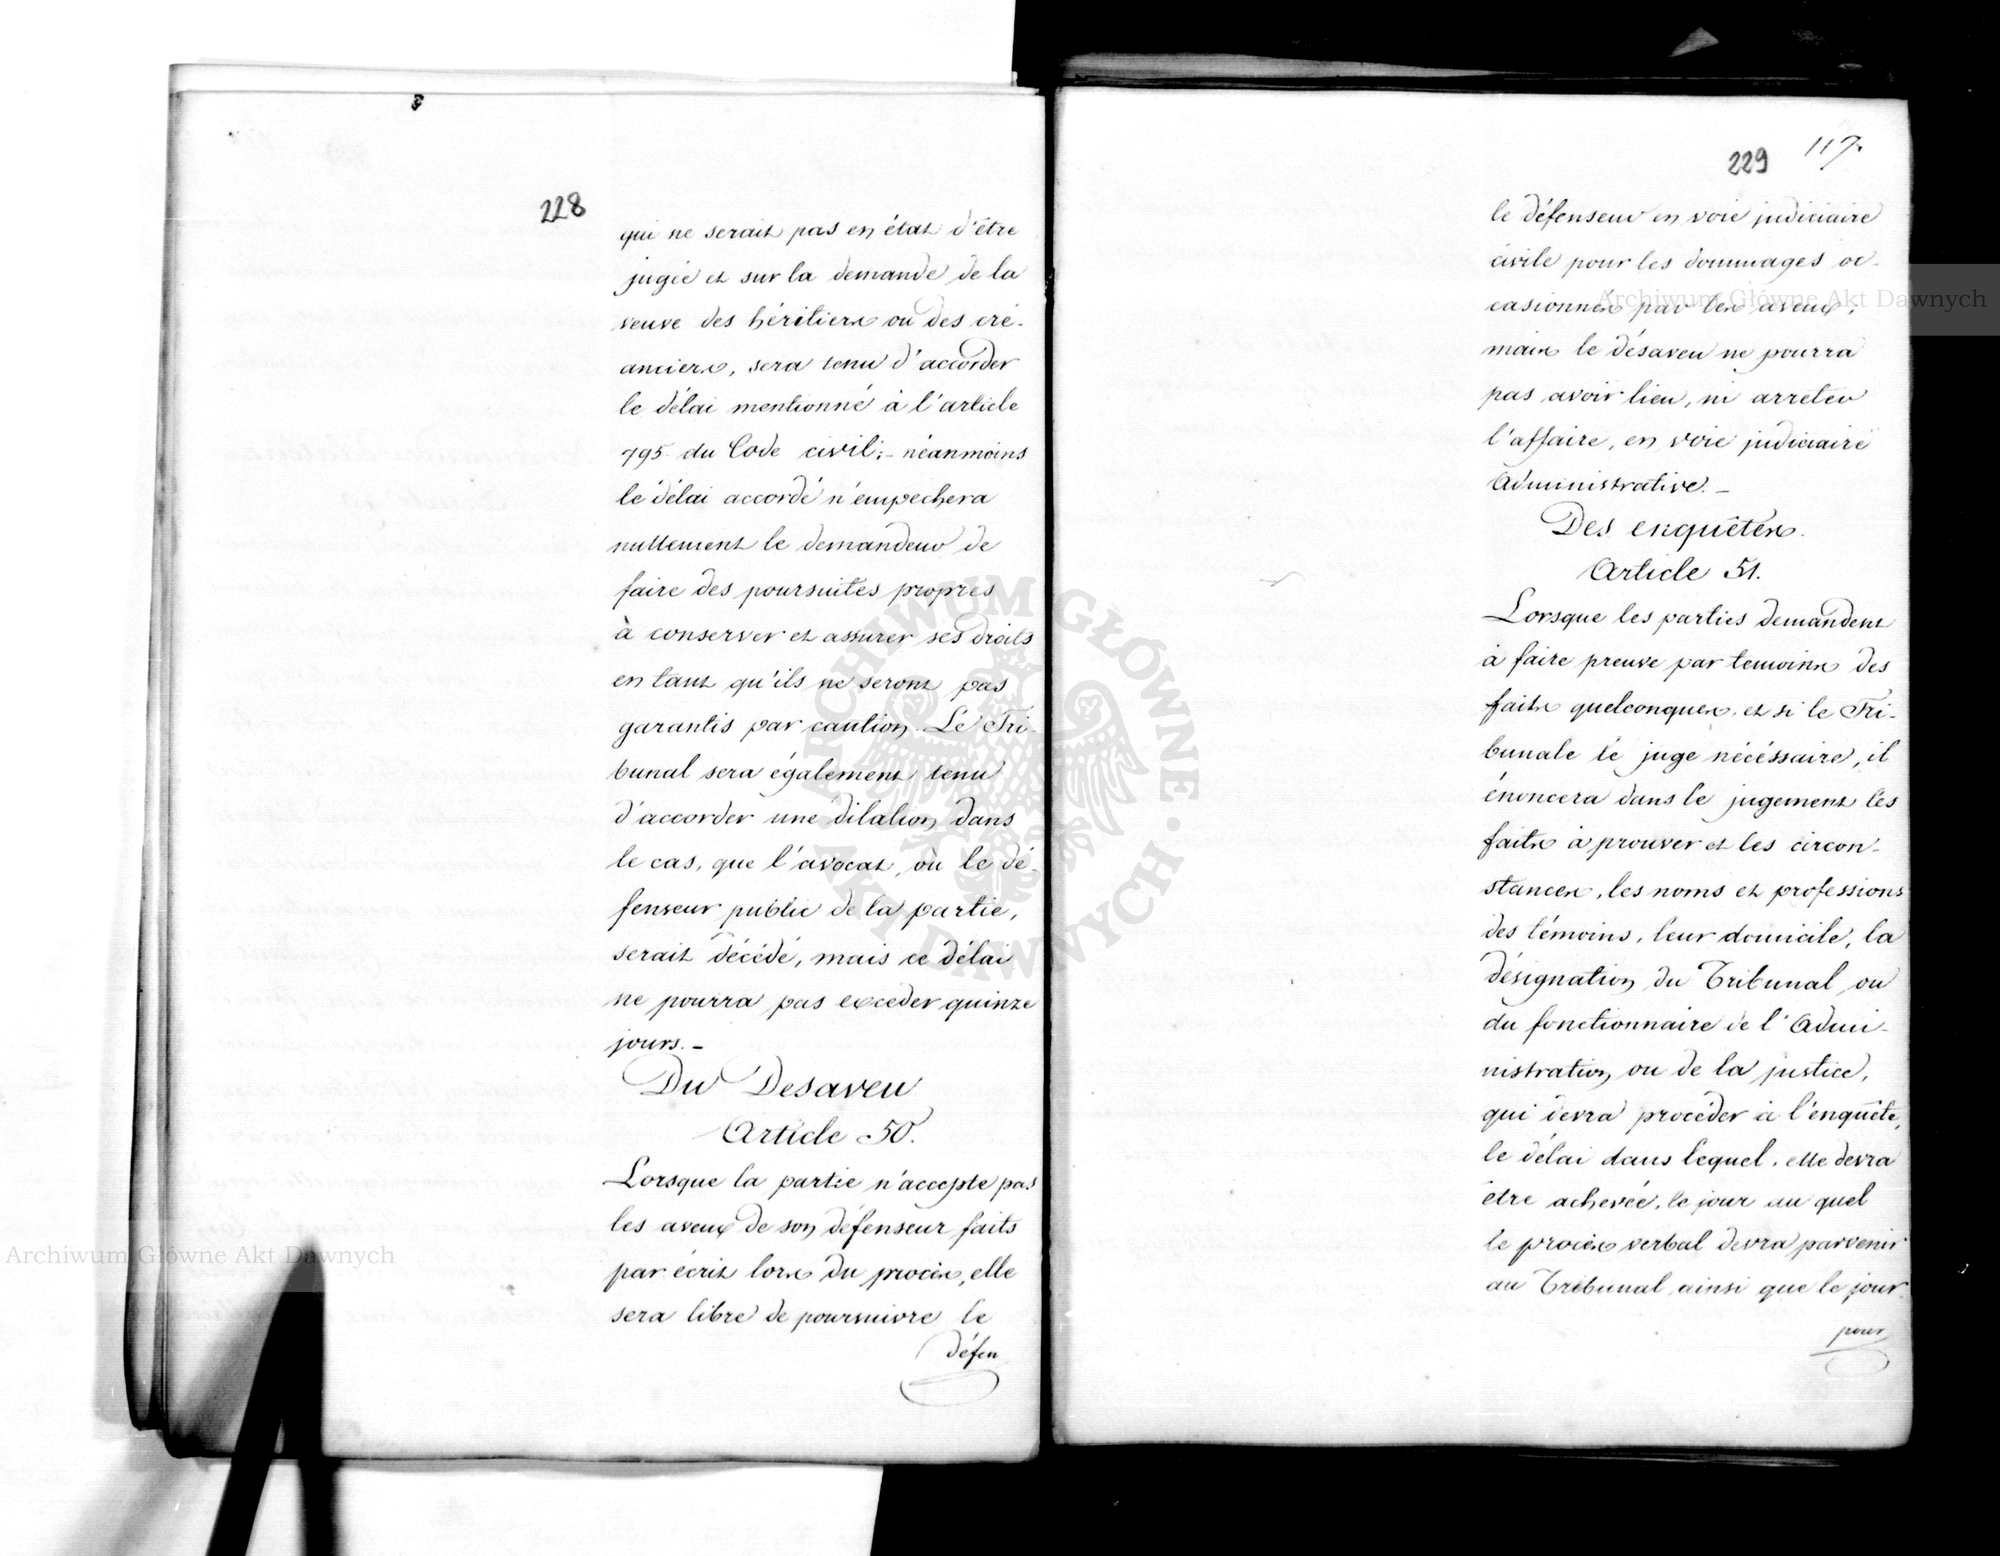 228
qui ne serait pas en état d'être
jugée et sur la demande de la
veuve des héritiers ou des cré-
anciers, sera tenu d'accorder
le délai mentionné à l'article
795 du Code civil; - néanmoins
le délai accordé n'empechera
nullement le demandeur de
faire des poursuites propres
à conserver et assurer ses droits
en tant qu'ils ne seront pas
garantis par caution. Le Tri-
bunal sera également tenu
d'accorder une dilation dans
le cas, que l'avocat, où le dé-
fenseur public de la partie,
serait décédé, mais ce délai
ne pourra pas exceder quinze
jours. -
Du Desaveu
Article 50.
Lorsque la partie n'accepte pas
les aveux de son défenseur faits
par écrit lors du procès, elle
sera libre de poursuivre le
défen
229 117.
le défenseur en voie judiciaire
civile pour les dommages oc-
casionnés par les aveux;
mais le désaveu ne pourra
pas avoir lieu, ni arreter
l'affaire, en voie judiciaire
Administrative. -
Des enquêtes.
Article 51.
Lorsque les parties demandent
à faire preuve par temoins des
faits quelconques, et si le Tri-
bunale le juge nécéssaire, il
énoncera dans le jugement les
faits à prouver et les circon-
stances, les noms et professions
des témoins, leur domicile, la
désignation du Tribunal ou
du fonctionnaire de l'Admi-
nistration ou de la justice,
qui devra procéder à l'enquête,
le délai dans lequel, elle devra
etre achevée, le jour au quel
le procès verbal devra parvenir
au Tribunal, ainsi que le jour
pour
Archiwum Główne Akt Dawnych
Archiwum Główne Akt Dawnych
ARCHIWUM GŁÓWNE · AKT DAWNYCH ·